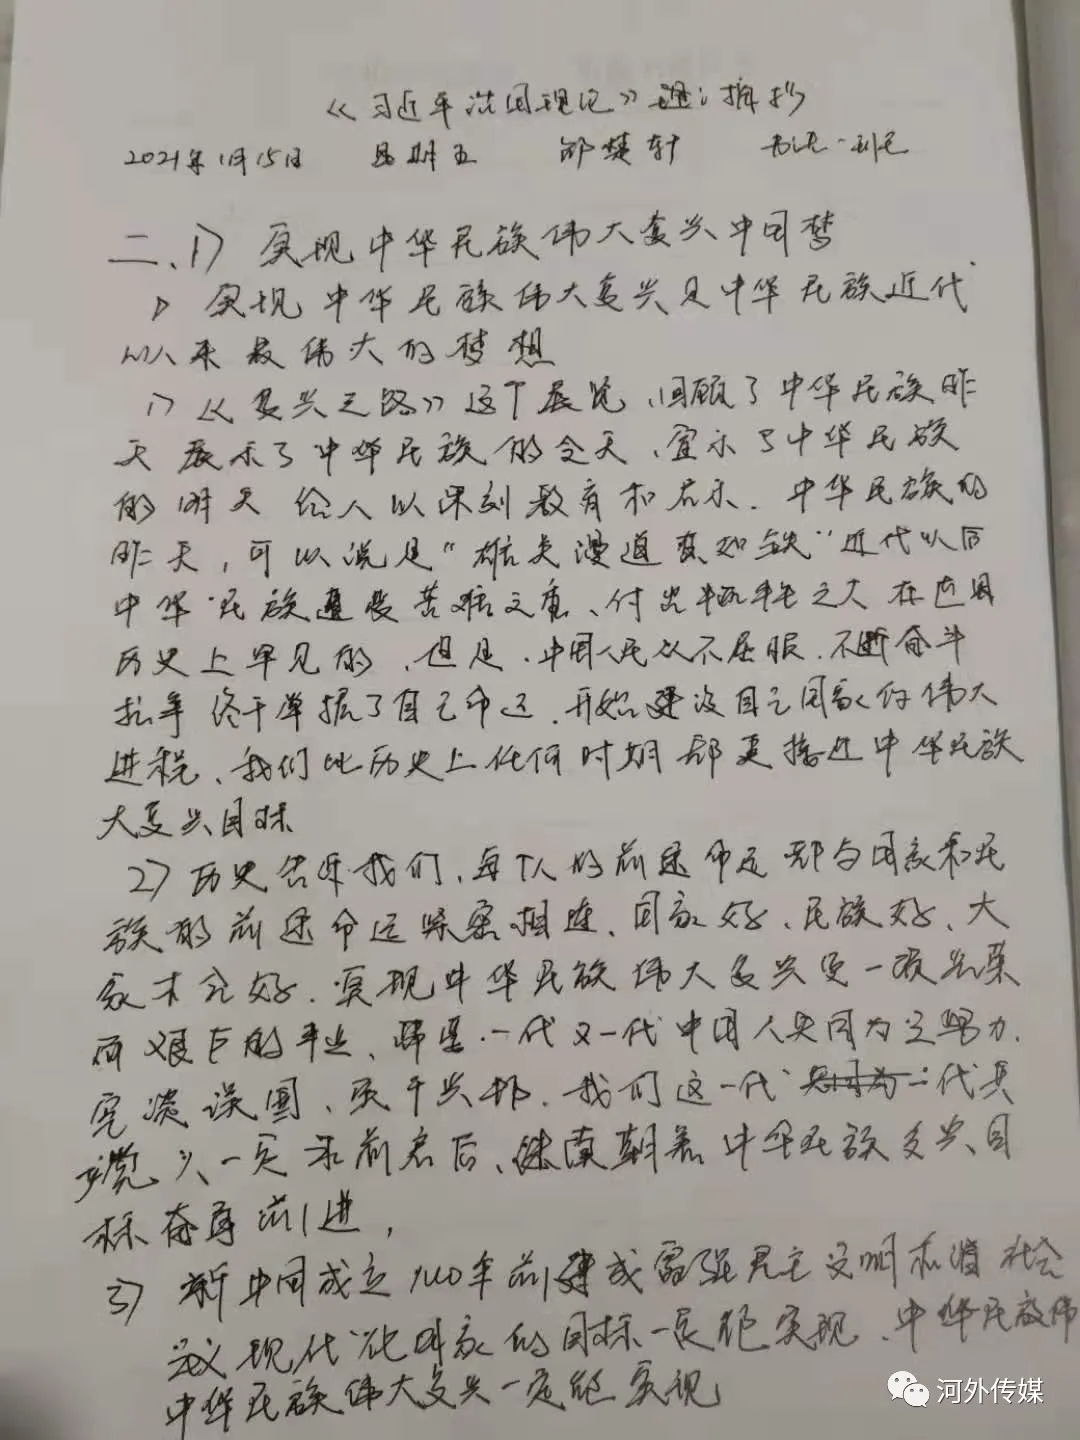 《习近平治国理论》 摘抄
2021年1月15日 星期五 邵楚轩
二、1) 实现中华民族伟大复兴中国梦
实现中华民族伟大复兴是中华民族近代
以来最伟大的梦想
1)《复兴之路》这个展览、回顾了中华民族昨
天展示了中华民族的今天、宣示了中华民族
的明天给人以深刻教育和启示. 中华民族的
昨天,可以说是"雄关漫道真如铁"近代以后
中华民族遭受苦难之重、付出牺牲之大在世界
历史上罕见的,但是,中国人民从不屈服.不断奋斗
抗争终于掌握了自己命运.开始建设自己国家的伟大
进程、我们比历史上任何时期都更接近中华民族
大复兴目标
2)历史告诉我们,每个人的前途命运都与国家和民
族的前途命运紧密相连、国家好、民族好、大
家才会好.实现中华民族伟大复兴是一项光荣
而艰巨的事业、需要一代又一代中国人共同为之努力.
空谈误国、实干兴邦.我们这一代共
产党人一定承前启后、继 朝着中华民族复兴目
标奋勇前进,
3)新中国成立100年前建成富强民主文明和谐社会
主义现代化国家的目标一定能实现、中华民族伟
中华民族伟大复兴一定能实现
河外传媒